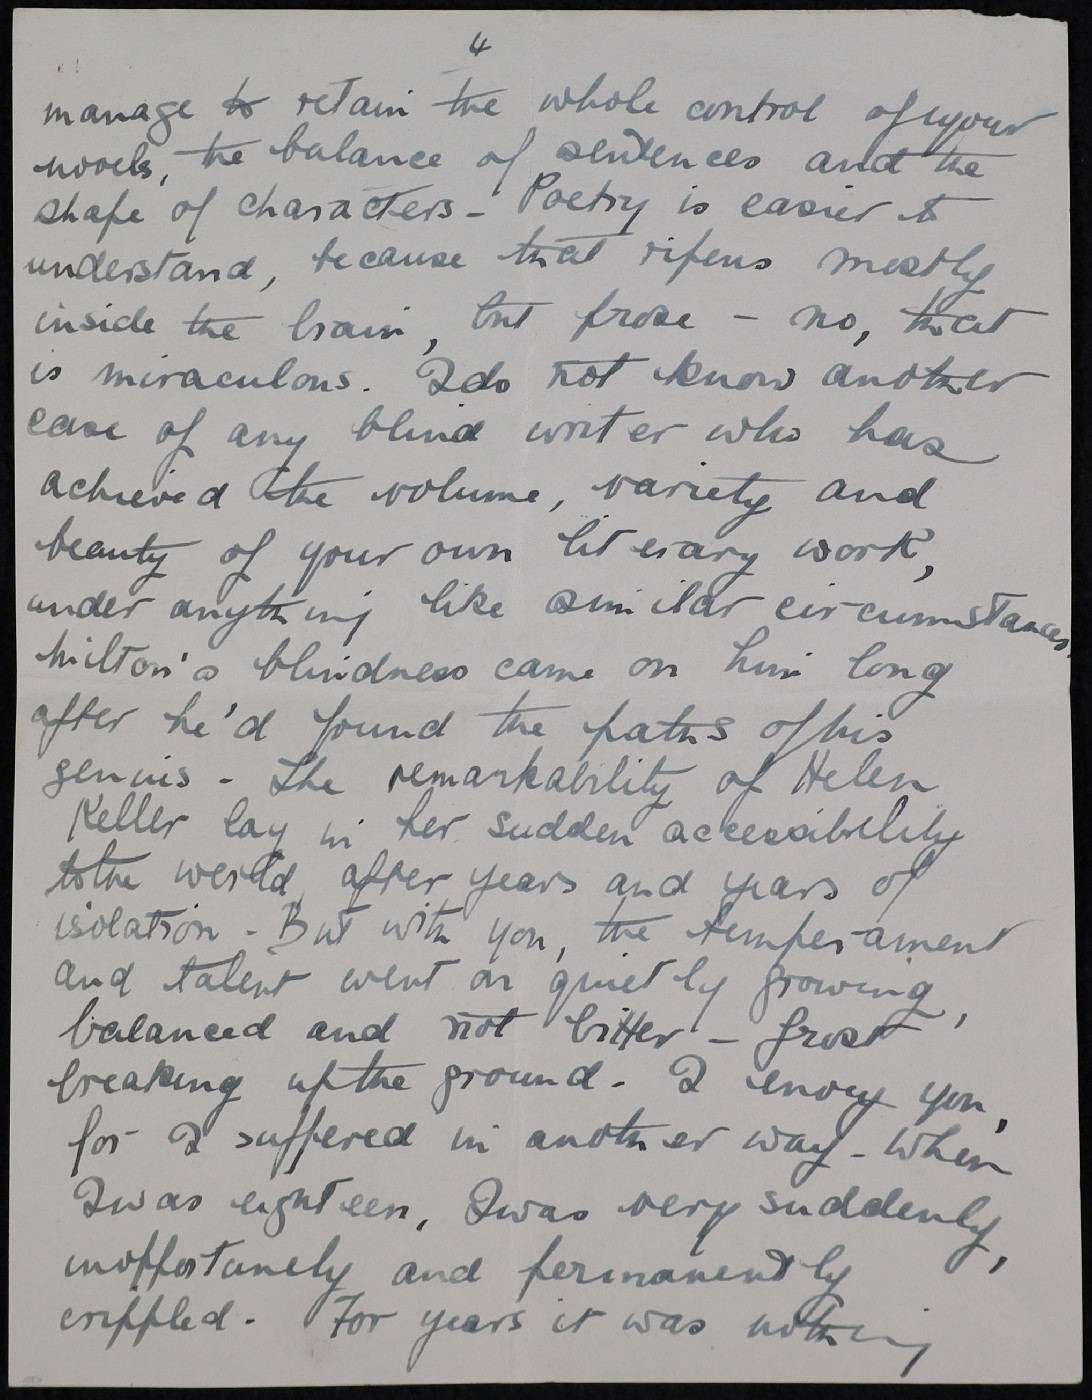 4
manage to retain the whole control of your
novels, the balance of sentences and the
shape of characters - Poetry is easier to
understand, because that ripens mostly
inside the brain, but prose - no, that
is miraculous. I do not know another
case of any blind writer who has
achieved the volume, variety and
beauty of your own literary work,
under anything like similar circumstances.
Milton's blindness came on him long
after he'd found the paths of his
genius - The remarkability of Helen
Keller lay in her sudden accessibility
to the world, after years and years of
isolation - But with you, the temperament
and talent went on quietly growing,
balanced and not bitter - frost
breaking up the ground. I envy you,
for I suffered in another way - When
I was eighteen, I was very suddenly,
inopportunely and permanently
crippled. For years it was nothing